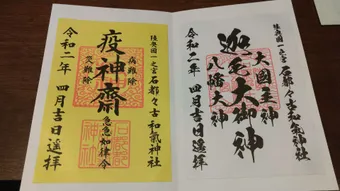 陸奥国一之宮石都々古和氣神社
大國主神
迦毛大御神
八幡大神
令和二年 四月吉日遥拝
陸奥国一之宮石都々古和氣神社
病難除
疫神齋
災難除
急急如律令
令和二年 四月吉日遥拝